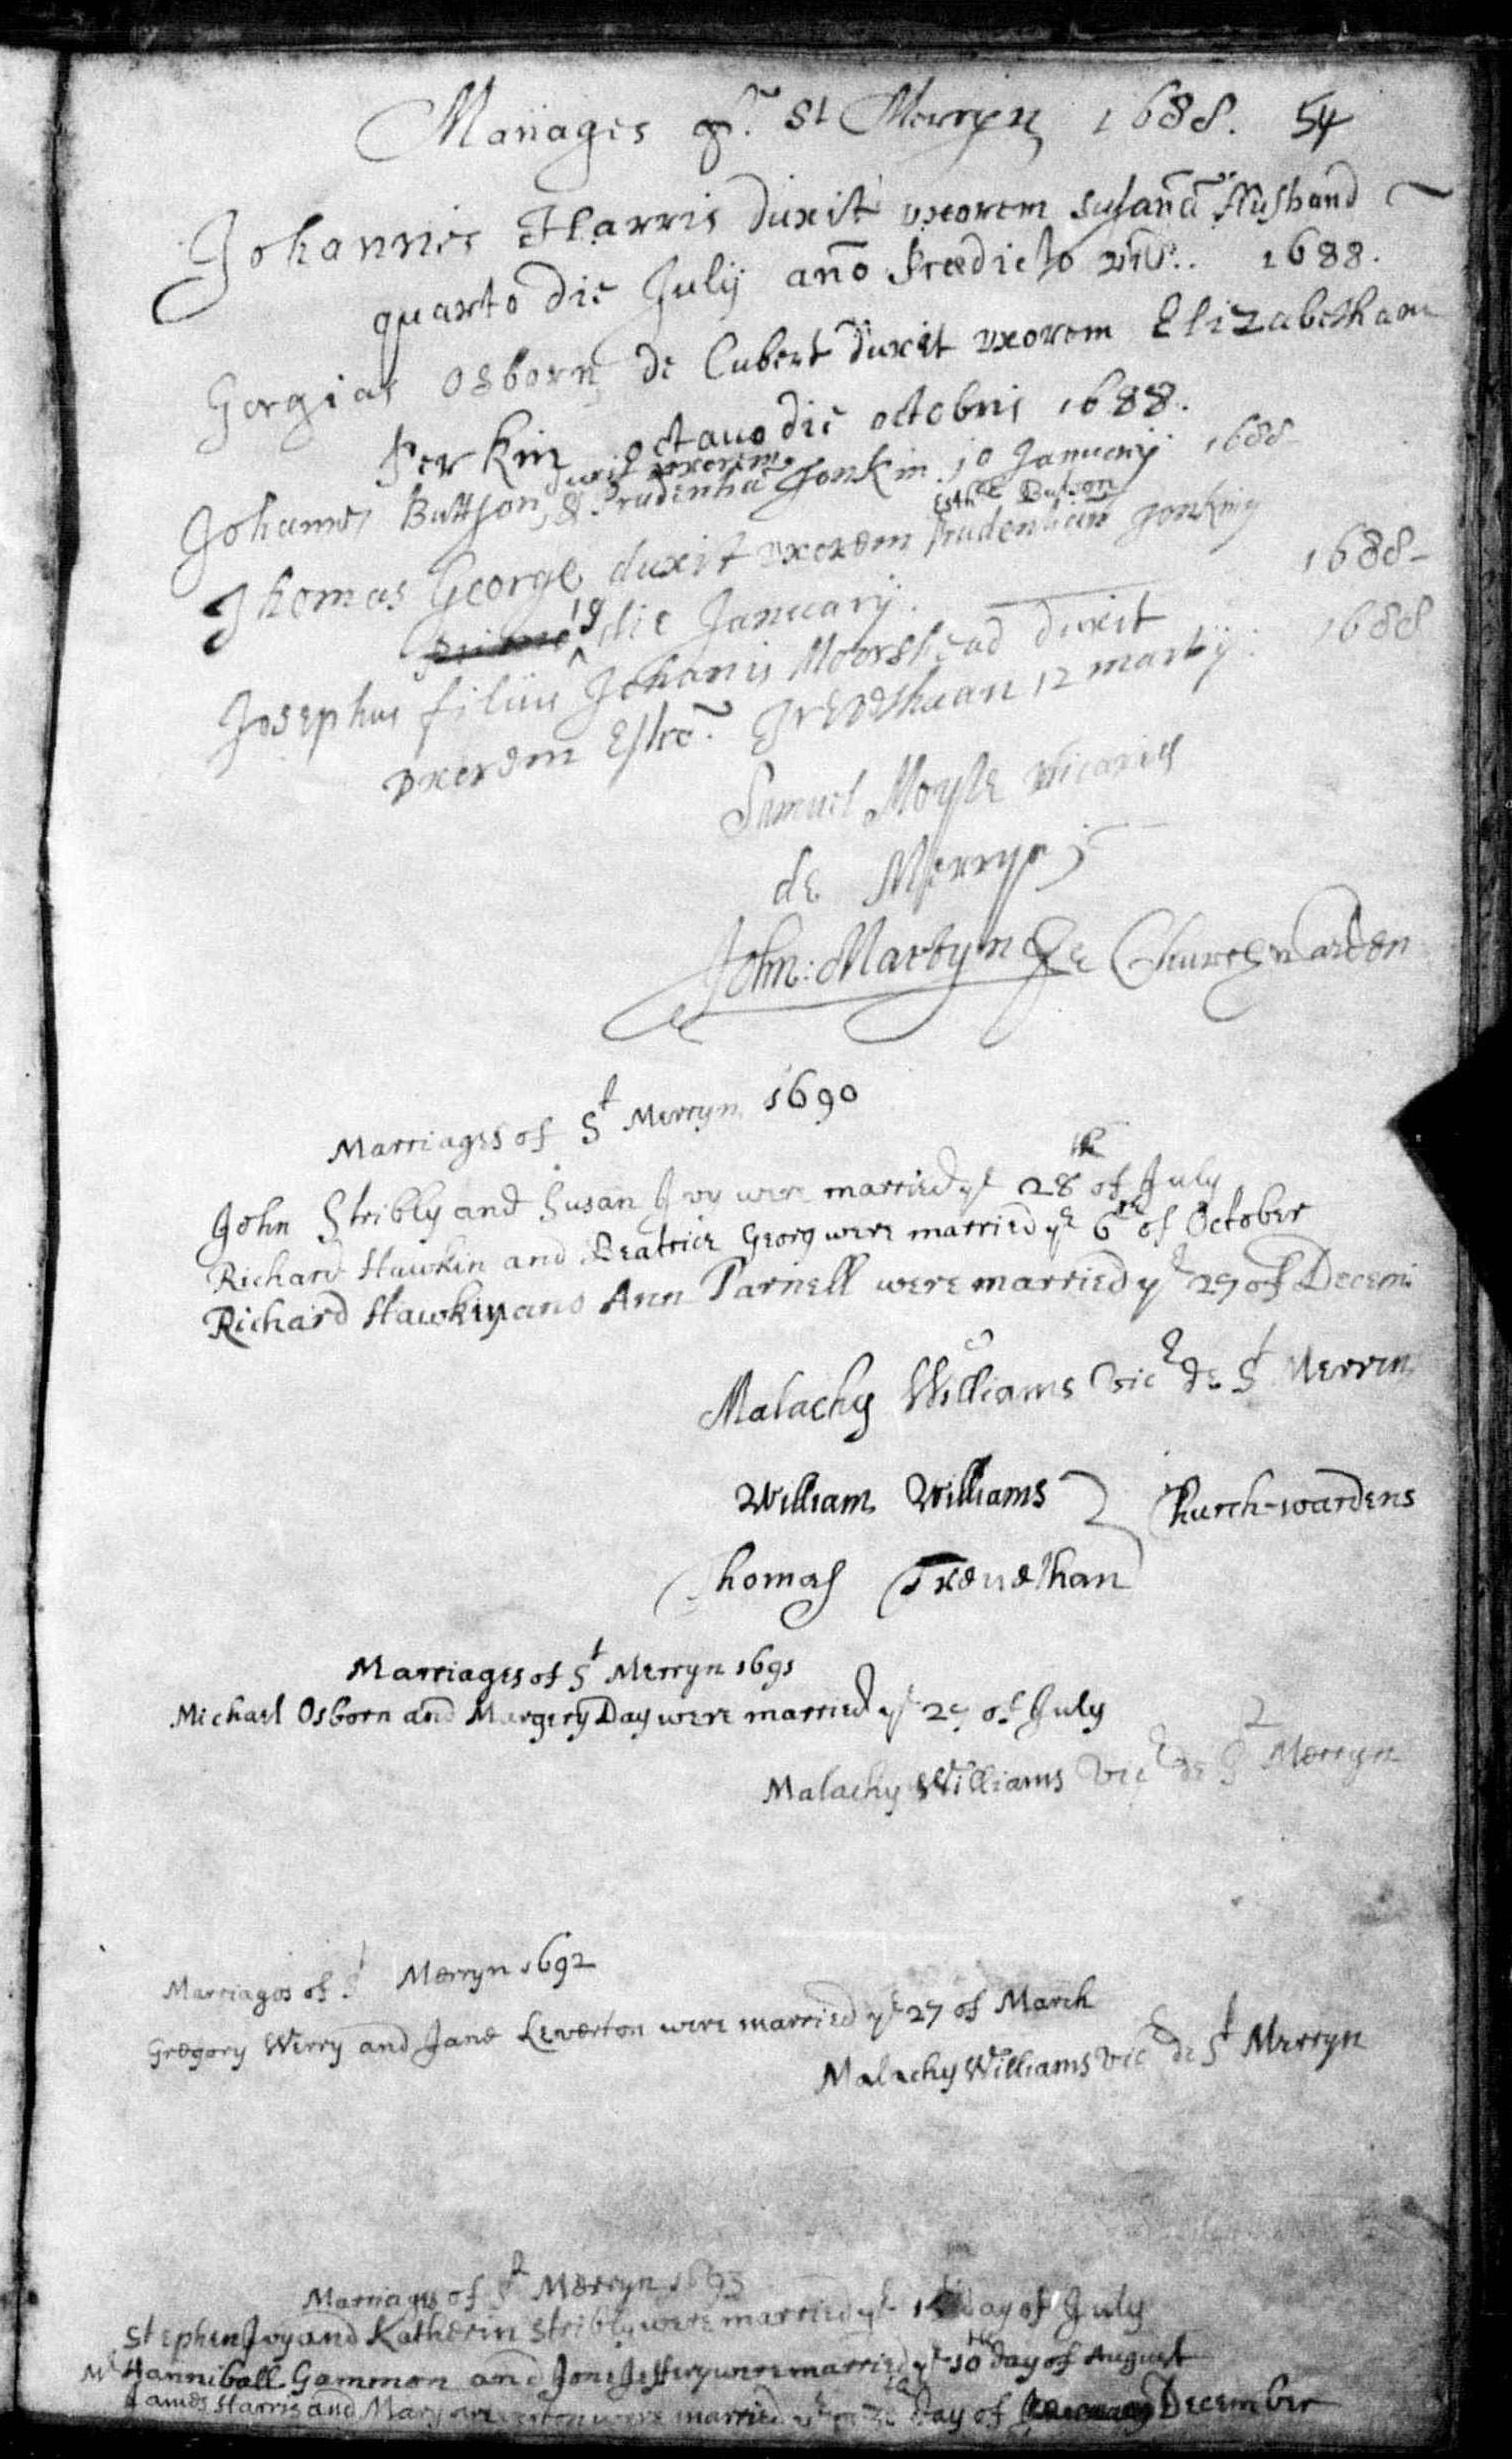 Marriages St Merryn 1688. 54
Johannes Harris duxit uxorem Susanā Husband
quarto die July año Predicto vid.. 1688.
Gorgias Osborn de Cubert duxit uxorem Elizabetham
Perkin octavo die octobris 1688.
duxit uxorem
Johannes Buttson & Prudentia Jonkin 10 January 1688
Esth Butson
Thomas George duxit uxorem Prudentiam Jonking
19 die January. 1688-
Josephus filius Johanis Moorshead duxit
uxorem Trevethuan 12 martij. 1688
Samuel Moyle vicarius
de Merryn
John: Martyn Churchwarden
Marriages of St Merryn 1690
John Stribly and Susan Ivy were married ye 28th of July
Richard Hawkin and Beatrice Georg were married ye 6th of October
Richard Hawkin and Ann Parnell were married ye 29 of Decem
Malachy Williams Vic de St Merrin
William Williams } Church-wardens
Thomas Trevethan
Marriages of St Merryn 1691
Michael Osborn and Margery Day were married ye of July
Malachy Williams Vic de St Merryn
Marriages of St Merryn 1692
Gregory Werry and Jane Leverton were married ye 27 of March
Malachy Williams Vic de St Merryn
Marriages of St Merryn 1693
Stephen Ivy and Katherin Stribly were married ye day of July
Mr Hanniball Gammon and Jone Jeffery were married ye 10th day of August
James Harris and Mary were married ye day of December